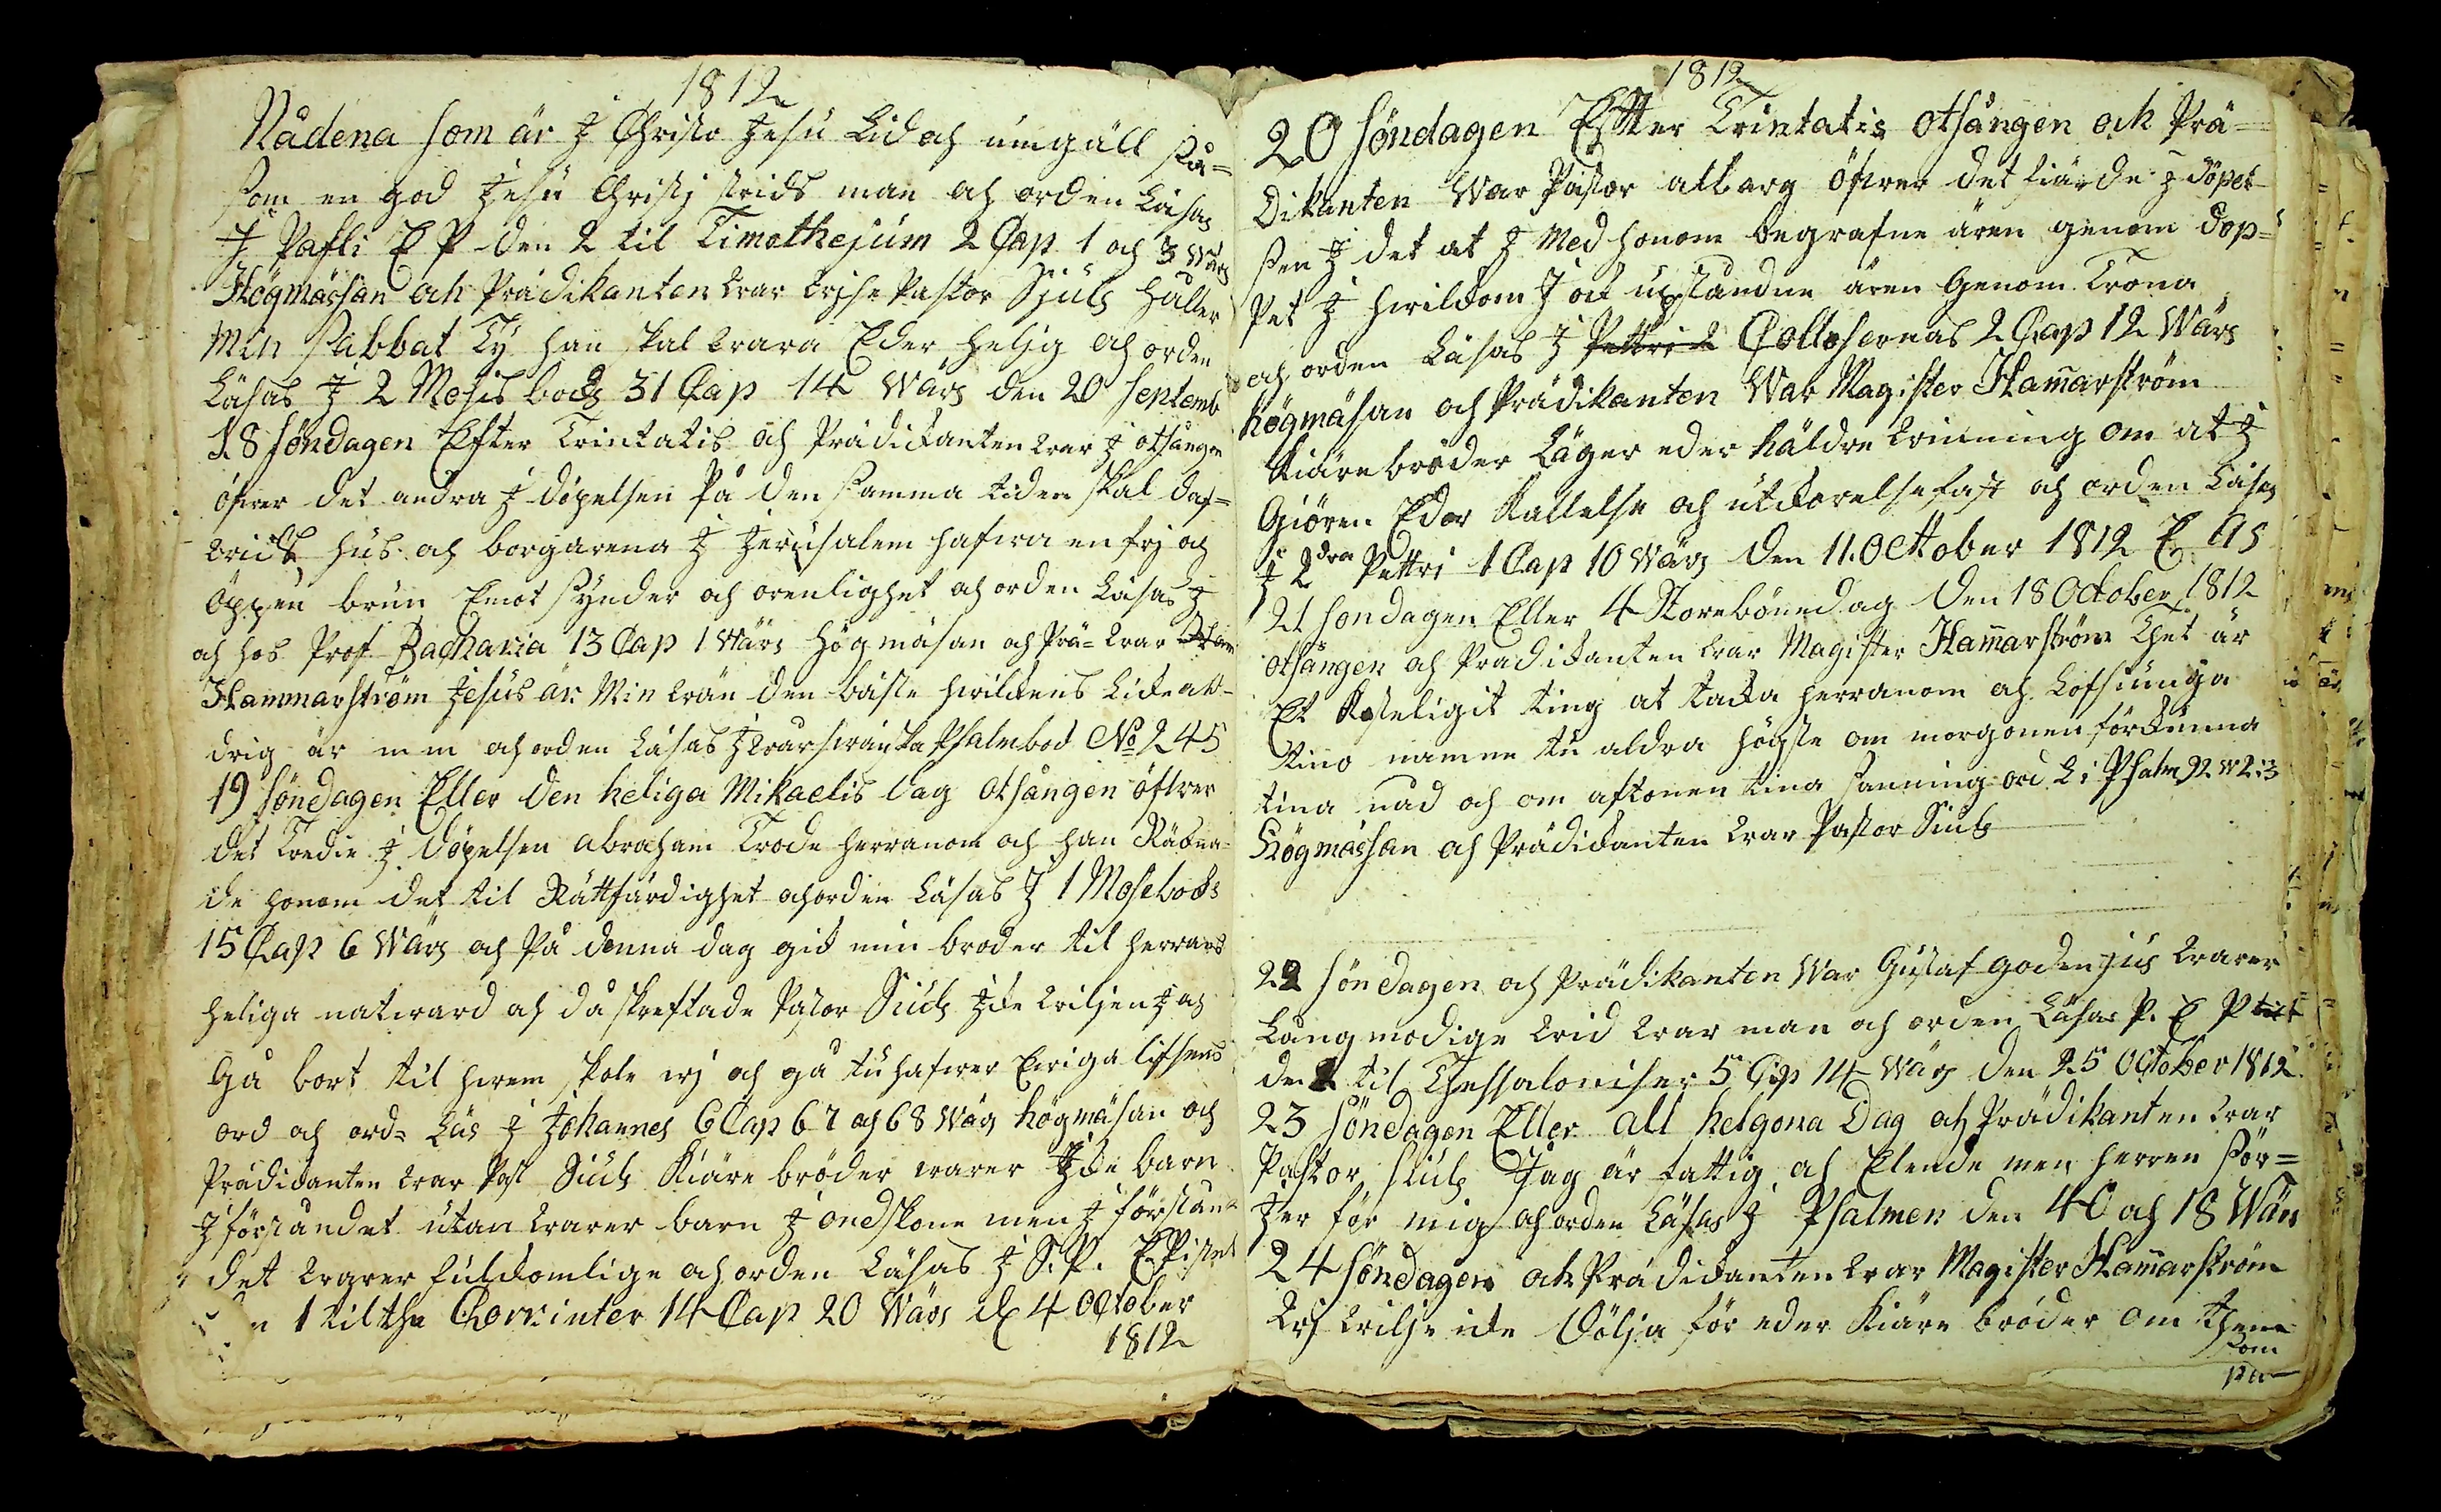 1812
Nådena som är J Christo Jesu Lid och umgäll så=
som en god Jesu Christj strids man och orden Läsas
J Pafli E P den 2 til Timothejum 2 Cap 1 och 3 wärs
Högmässan och Prädikanten war Pastor Sjuls håller
Min Sabbat Ty han skal wara Eder helig och orden
Läsas J 2 Mosis bocks 31 Cap 14 wärs den 20 Septemb
18 söndagen Efter Trintatis och Prädikanten war J otsången
öfwer det andra J döpelsen På den samma tiden skal daf=
wids hus och borgarena J Jerusalem hafwa en frj och
öppen brun Emot synder och orenlighet och orden Läsas J
och hos Prof Zacharia 13 Cap 1 wärs högmäsan och Prä= war
Hammarström Jesus är Min wän den bäste hwilkens Like ald=
drig är m m och orden Läsas J wår swänska Psalmbok No 245
19 söndagen Eller den heliga Mikaelis dag otsången öfwer
det Tredie J döpelsen abraham Trode herranom och han Räkna=
de honom det til Rättfärdighet och orden Läsas J 1 Mosebocks
15 Cap 6 wärs och På denna dag gick min broder til herrans
heliga natward och då skreftade Pastor Siuls Jcke wiljen J och
Gå bort til hwem skole wj och gå tu hafwer Ewiga lifsens
ord och ord= Läs J Johannes 6 Cap 67 och 68 wärs högmäsan och
Prädikanten war Past Siuls Kiäre bröder warer Jcke barn
J förståndet utan warer barn J ondskone men J förstån=
det warer fulkomlige och orden Läsas J S. P. EPistel
n 1 til the Chorinter 14 Cap 20 wärs d 4 October
1812
1812
20 söndagen Effter Trintatis otsången och Prä=
Dikanten War Pastor altberg öfwer det fiärde J döpel=
sen J det at J Med honom begrafne ären genom dop=
Pet J hwilkom J ock upståndne ären Genom Trona
och orden Läsas J Pettri 2 Collosernas 2 Cap 12 Wärs
högmäsan och Prädikanten War Magister Hamarström
Kiäre bröder Läger eder häldre winning om at J
Giören Eder Kallelse och utkorelse fast och orden Läsas
J 2dra Pettri 1 Cap 10 wärs den 11. October 1812 E As
21 söndagen Eller 4 Storebönedag den 18 October 1812
otsången och Prädikanten war Magister Hamarström Thet är
Et Kosteligit ting at tacka herranom och Lofsiunga
tino namne tu aldra högste om morgonen förkunna
tina nåd och om aftonen tina sanning ord L i Psalm 92 w 2 : 3
Högmässan och Prädikanten war Pastor Siuls
22 söndagen och Prädikanten War Gustaf godenjus warer
Långmodige wid war man och orden Läsas P. E P
den 1 til Thessaloniser 5 Cap 14 wärs den 25 October 1812
23 söndagen Eller all helgona Dag och Prädikanten war
Pastor Siuls Jag är fattig och Elende men herren sör=
jer för mig och orden Läsas J Psalmen den 40 och 18 Wärs
24 söndagen och Prädikanten war Magister Hamarström
Wj wilje icke Dölja för eder Kiäre bröder om them
som